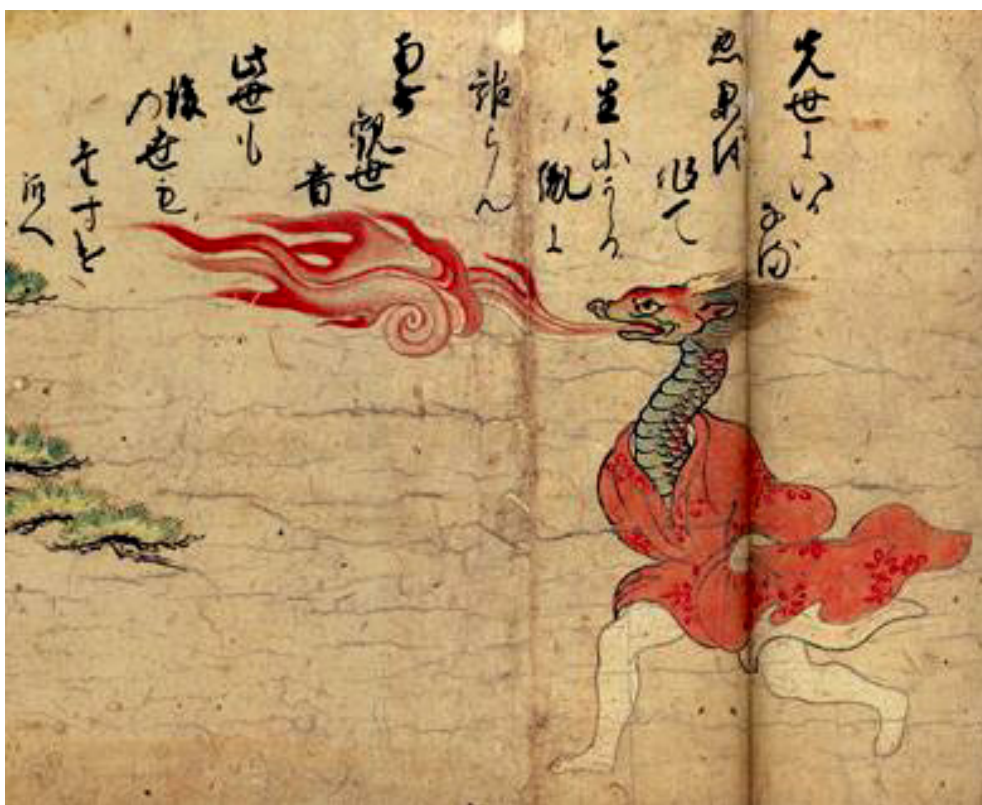 先世にいか
なる
悪業を
作て
今生にかゝる
縁に
らん
南無
観世
音
此世も
後
の世も
たすけ
給へ